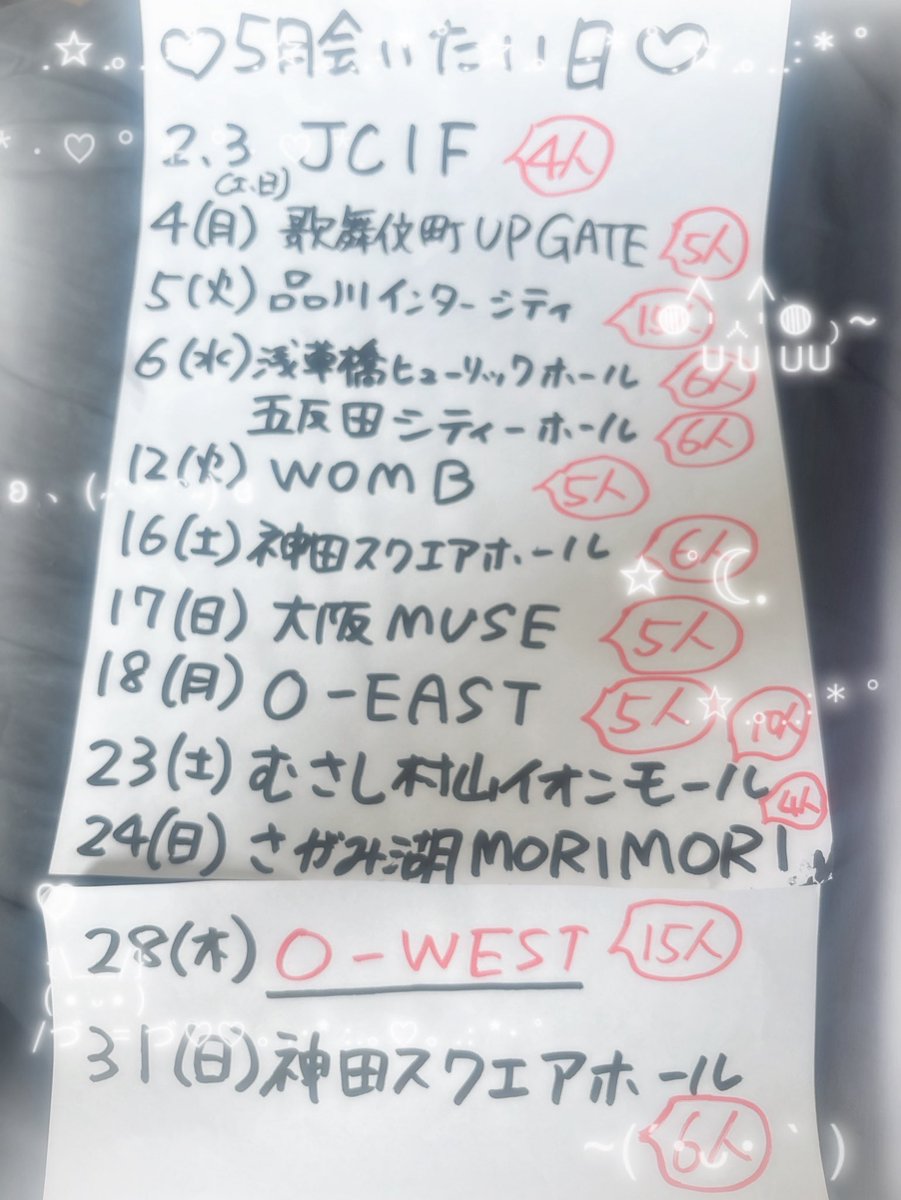 ♡5月会いたい日♡
2.3 JCIF 4人
(土、日)
4(月) 歌舞伎町 UP GATE 5人
5(火) 品川インターシティ 15人
6(水) 浅草橋ヒューリックホール 6人
五反田シティーホール 6人
12(火) WOMB 5人
16(土) 神田スクエアホール 6人
17(日) 大阪 MUSE 5人
18(月) O-EAST 5人
23(土) むさし村山イオンモール 10人
24(日) さがみ湖 MORIMORI 4人
28(木) O-WEST 15人
31(日) 神田スクエアホール
6人